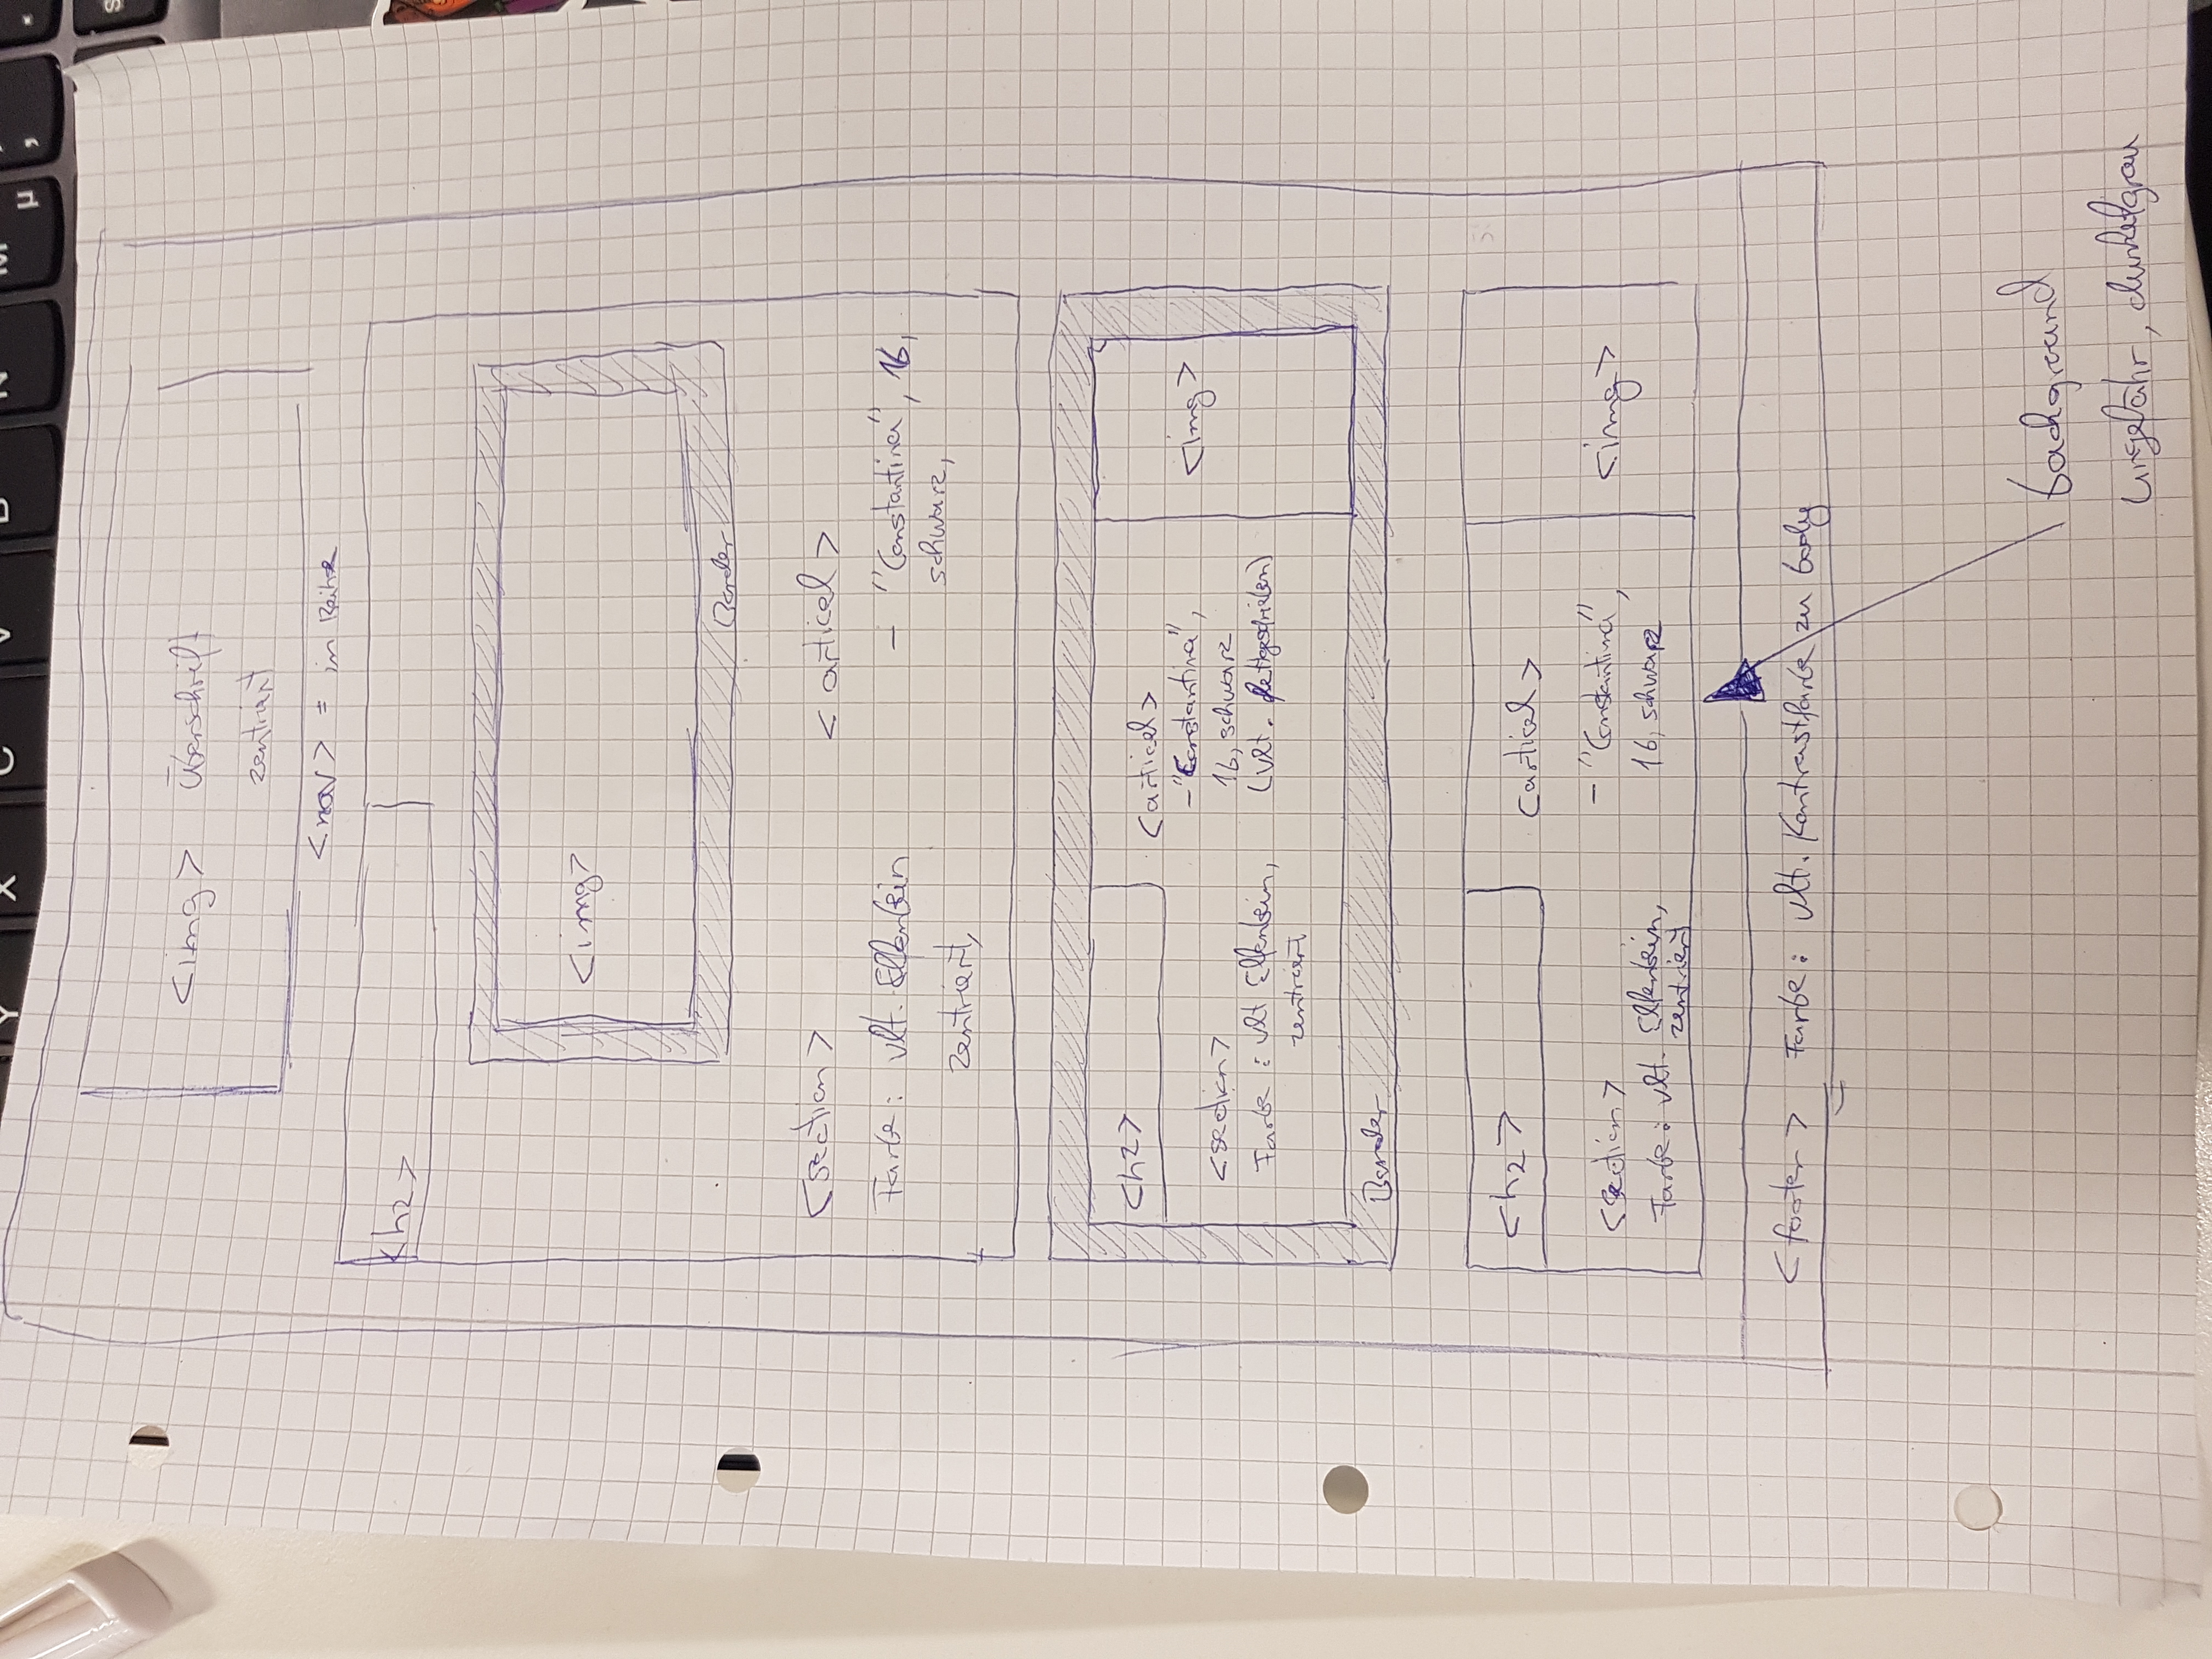 Y X C V B N M µ ;
<img> Überschrift
zentriert
<nav> = in Reihe
<h2>
<img>
Border
<section>
Farbe: vlt. Elfenbein
zentriert,
<articel>
- "Constantina", 16,
schwarz,
<h2>
<section>
Farbe: vlt Elfenbein,
zentriert
<articel>
- "Constantina",
16, schwarz
(vlt. fettgeschrieben)
<img>
Border
<h2>
<section>
Farbe: vlt. Elfenbein,
zentriert
<articel>
- "Constantina",
16, schwarz
<img>
<footer> Farbe: vlt. Kontrastfarbe zu body
background
ungefähr, dunkelgrau